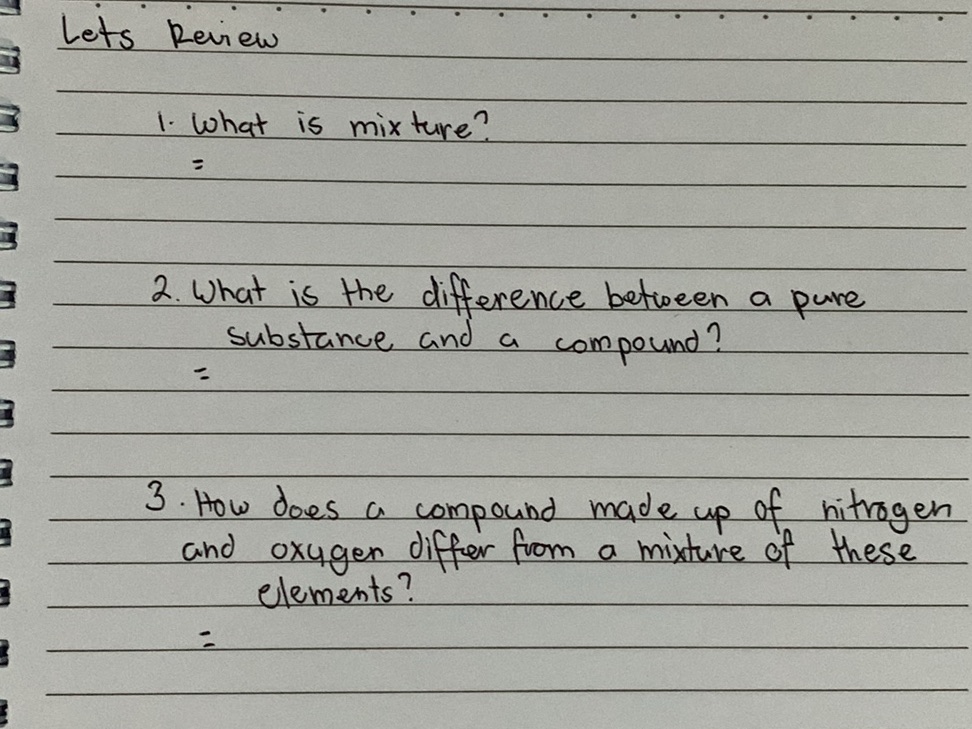 Lets Review
1. What is mixture?
=
2. What is the difference between a pure
substance and a compound?
=
3. How does a compound made up of nitrogen
and oxygen differ from a mixture of these
elements?
=